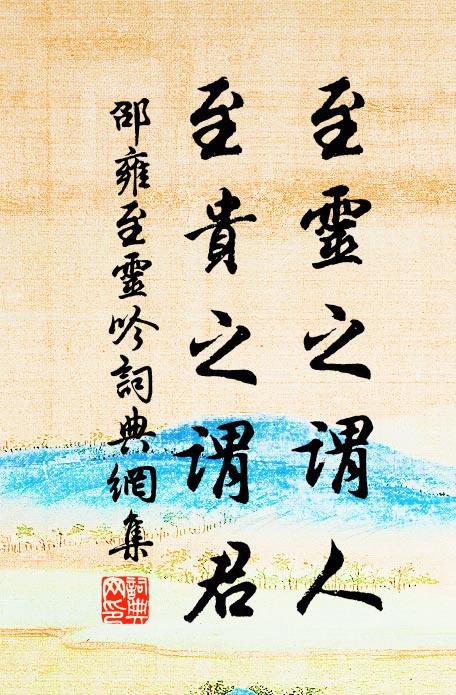 至靈之謂人
至貴之謂君
邵雍至靈吟詞典網集
詞典網印